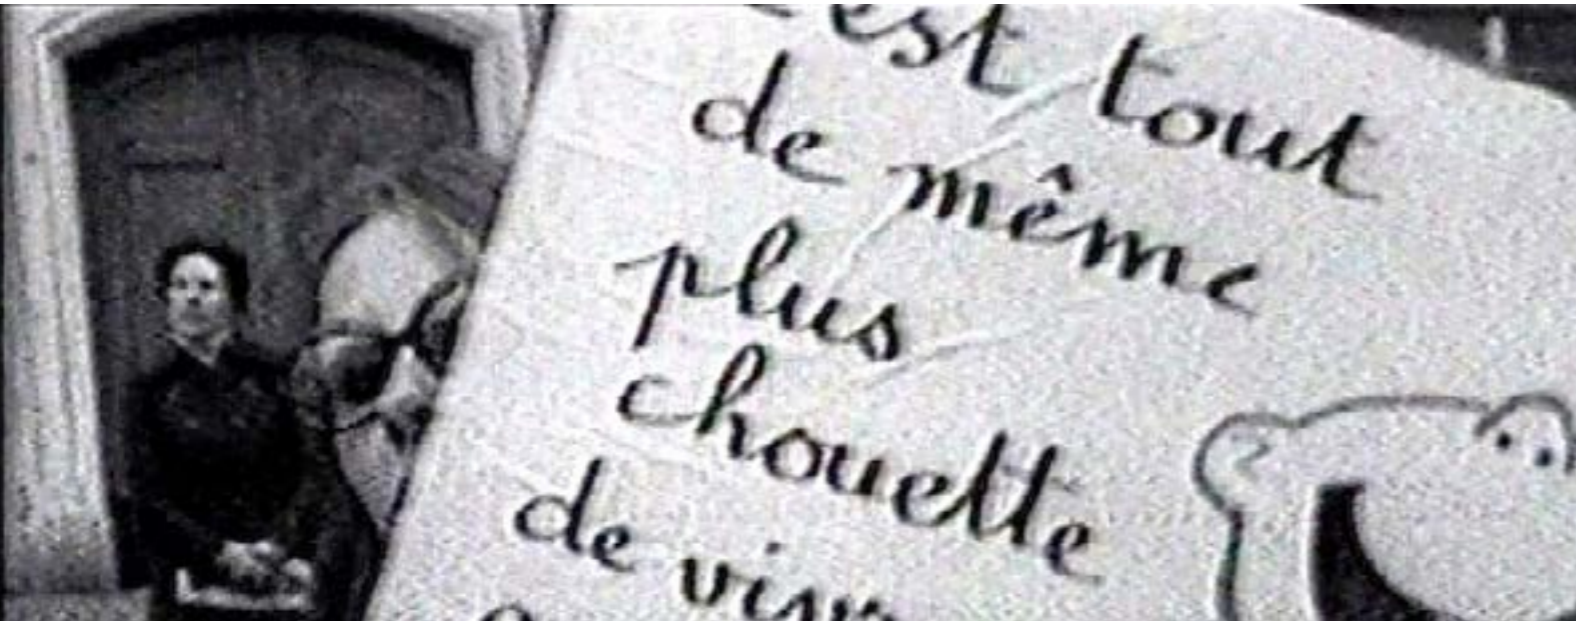 est tout
de même
plus
chouette
de viv